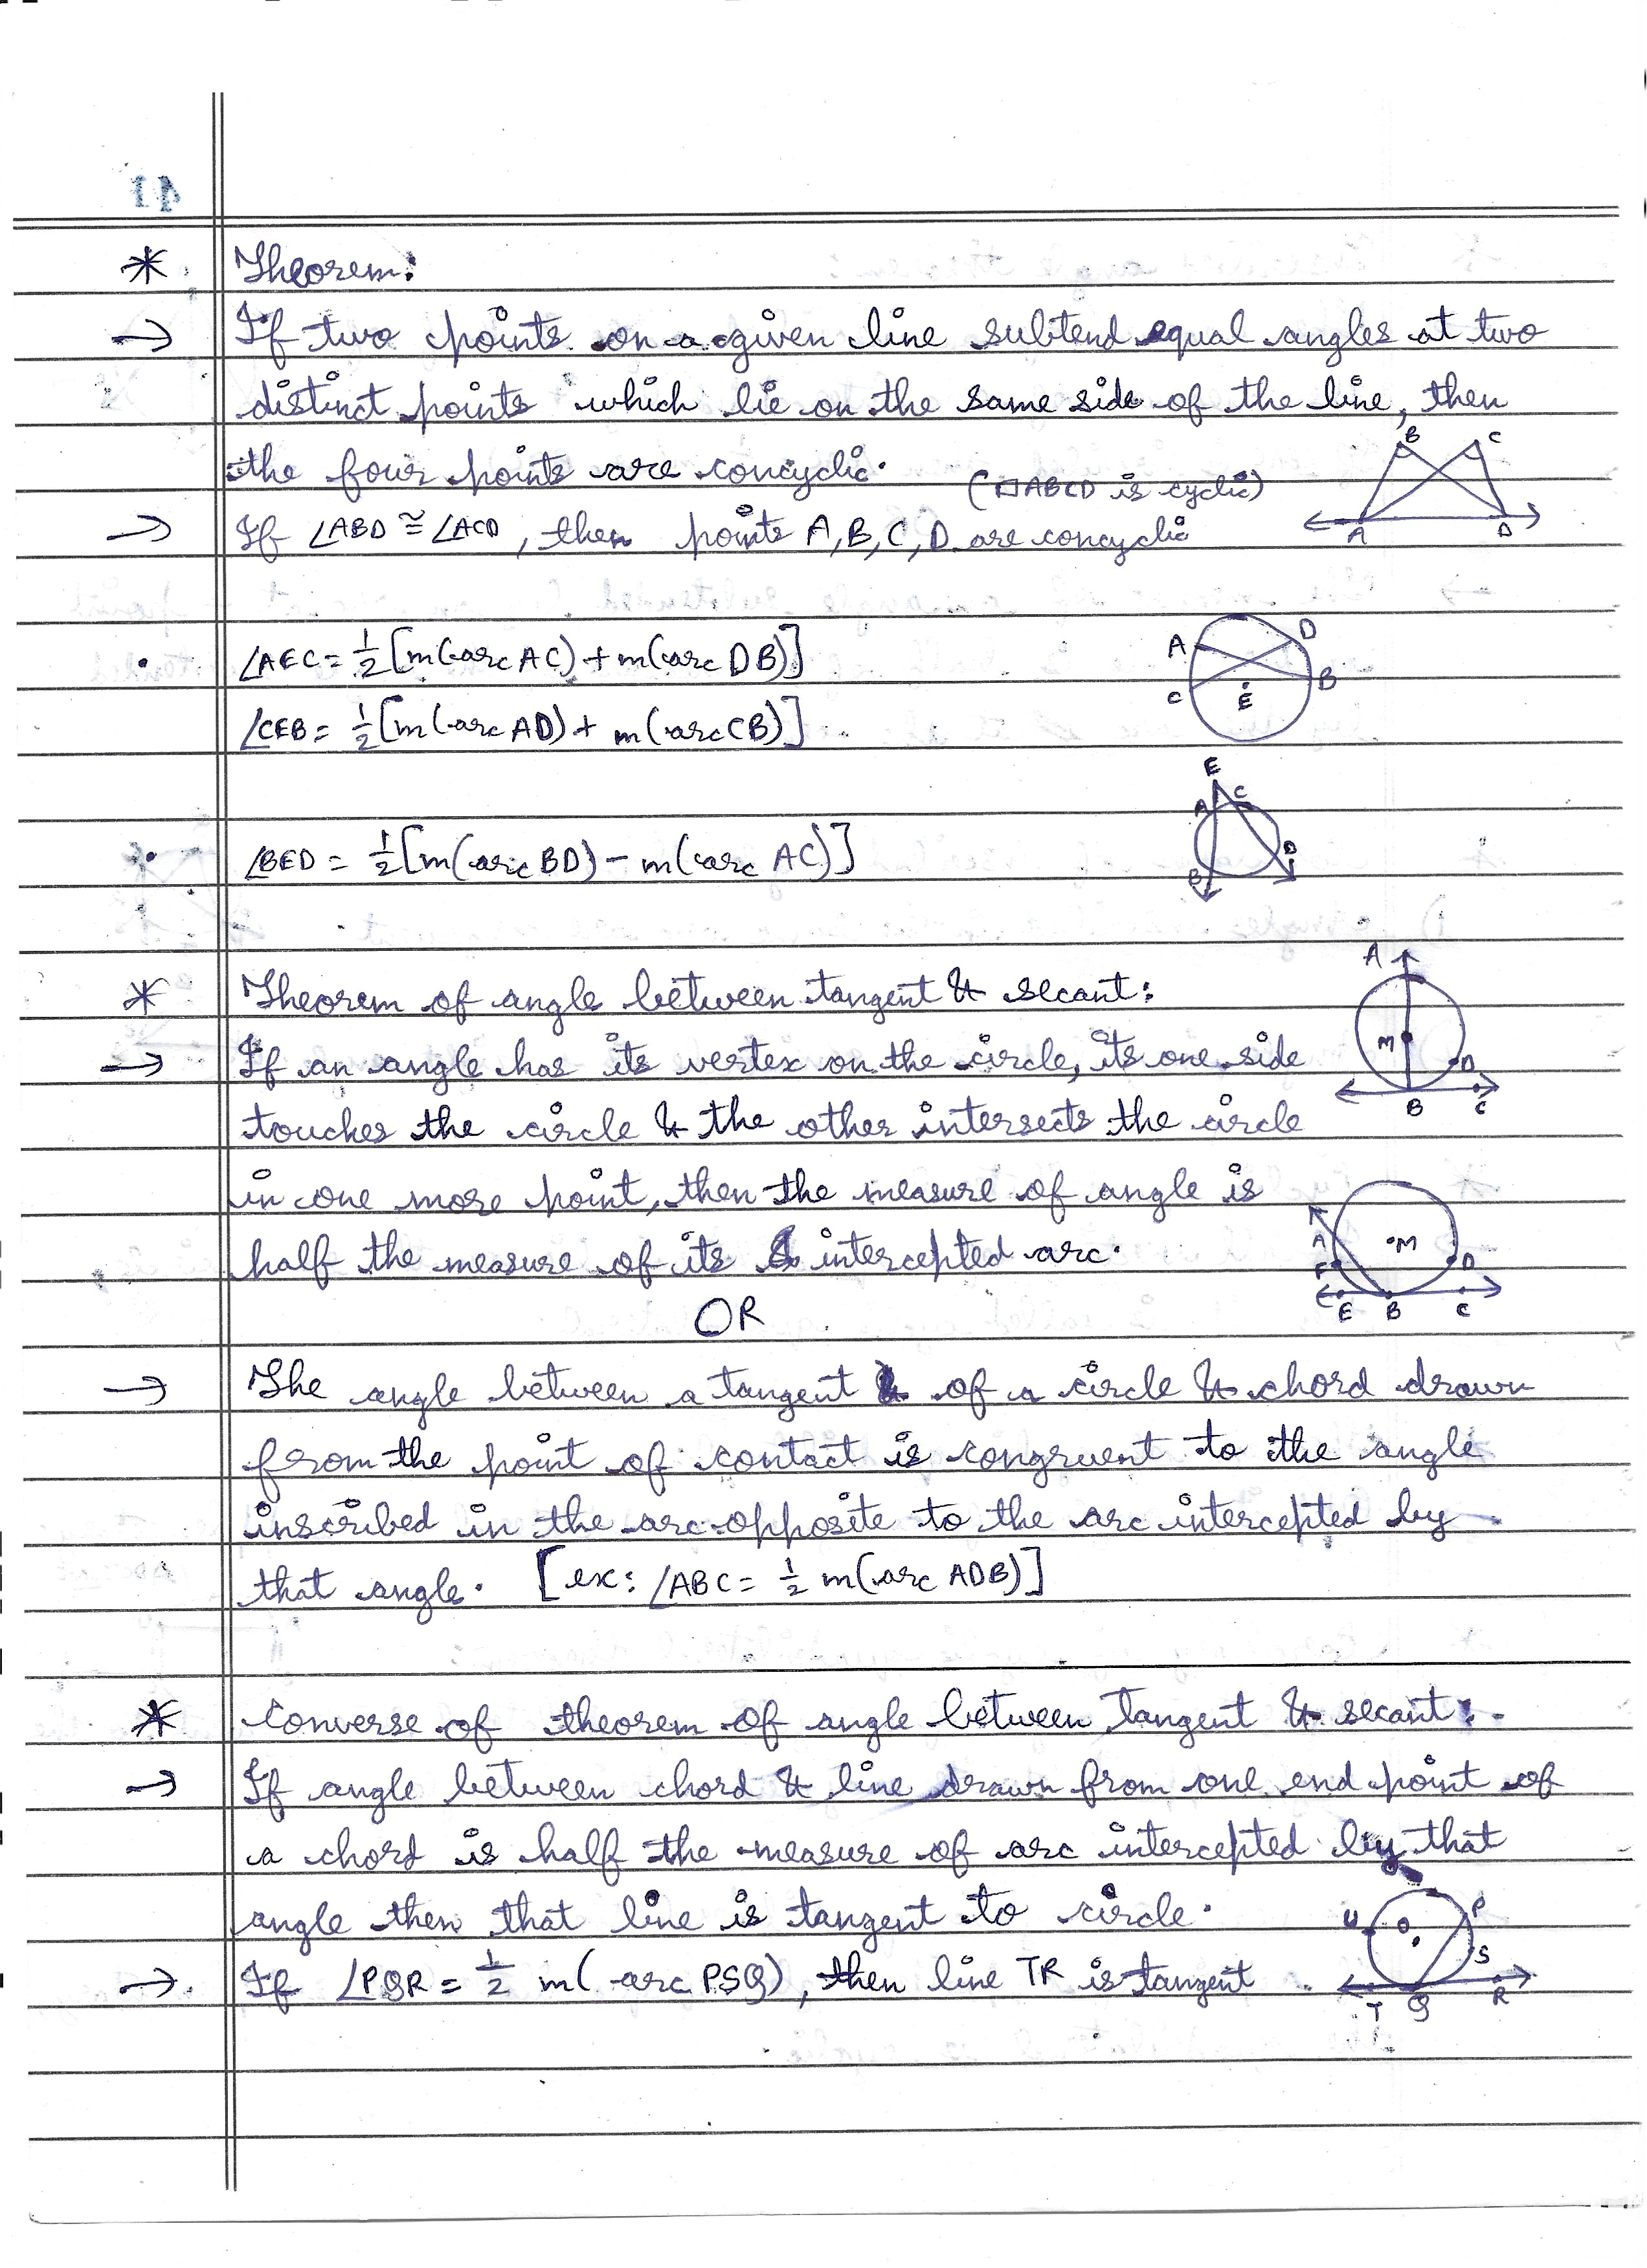 41
* Theorem:
→ If two points on a given line subtend equal angles at two
distinct points which lie on the same side of the line, then
the four points are concyclic. (□ABCD is cyclic)
B C
→ If ∠ABD ≅ ∠ACD, then points A, B, C, D are concyclic
A D
• ∠AEC = 1/2 [m(arc AC) + m(arc DB)]
A D
C E B
∠CEB = 1/2 [m(arc AD) + m(arc CB)]
E
A C
• ∠BED = 1/2 [m(arc BD) - m(arc AC)]
B D
* Theorem of angle between tangent & secant:
A
M
D
B C
→ If an angle has its vertex on the circle, its one side
touches the circle & the other intersects the circle
in one more point, then the measure of angle is
half the measure of its intercepted arc.
A M
F D
E B C
OR
→ The angle between a tangent of a circle & chord drawn
from the point of contact is congruent to the angle
inscribed in the arc opposite to the arc intercepted by
that angle. [ex: ∠ABC = 1/2 m(arc ADB)]
* Converse of theorem of angle between tangent & secant:
→ If angle between chord & line drawn from one end point of
a chord is half the measure of arc intercepted by that
angle then that line is tangent to circle.
U O P
S
→ If ∠PQR = 1/2 m(arc PSQ), then line TR is tangent
T Q R